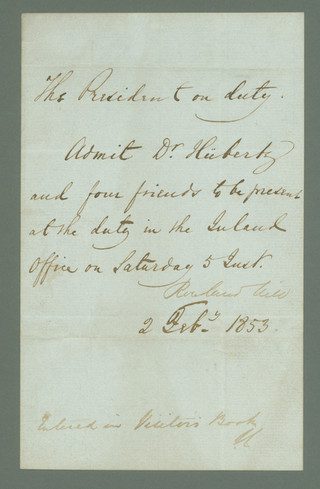 The President on duty.
Admit Dr. Hüberty
and four friends to be present
at the duty in the Inland
Office on Saturday 5 Inst.
Rowland Hill
2 Feby 1853.
Entered in Visitors Book